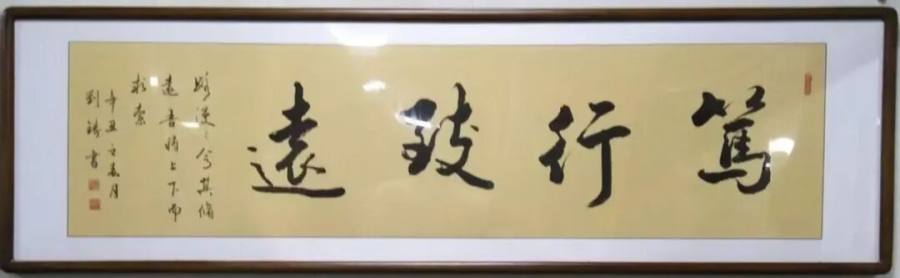 篤行致遠
路漫々兮其脩
遠吾將上下而
求索
辛丑之春月
劉濤書